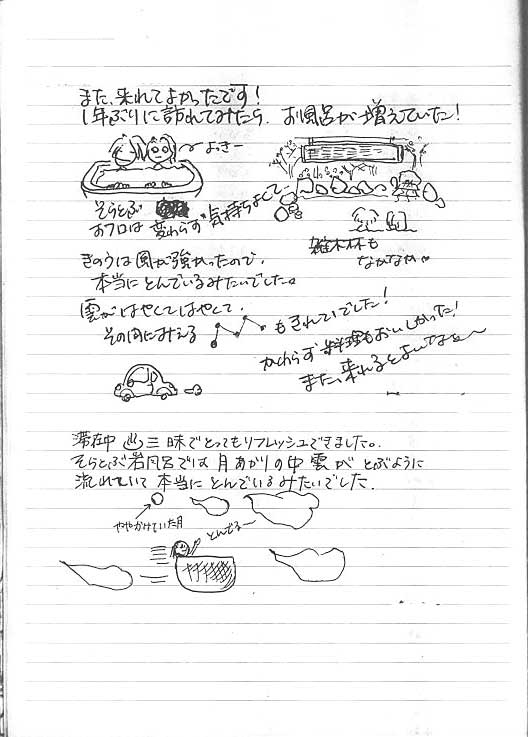 また、来れてよかったです!
1年ぶりに訪れてみたら、お風呂が増えていた!
よきー
そらとぶ
おフロは 変わらず 気持ちよくてー
雑木林も
なかなか。
きのうは風が強かったので、
本当にとんでいるみたいでした。
雲がはやくてはやくて、
その間にみえる もきれいでした!
かわらず 料理もおいしかった!
また、来れるとよいなぁ〜
滞在中 ♨三昧でとってもリフレッシュできました。
そらとぶ岩風呂では 月あかりの中 雲が とぶように
流れていて 本当に とんでいるみたいでした。
ややかけていた月
とんでるー